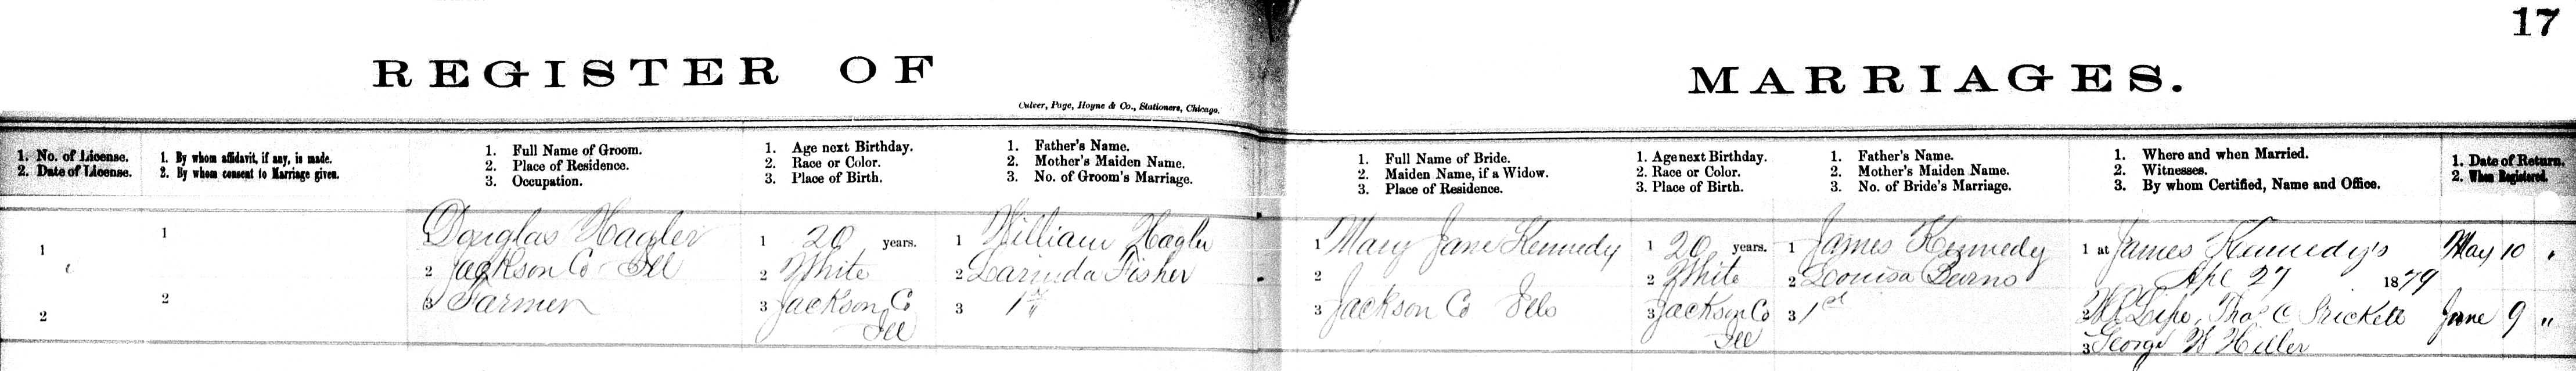 17
REGISTER OF MARRIAGES.
Culver, Page, Hoyne & Co., Stationers, Chicago.
1. No. of License.
2. Date of License.
1. By whom affidavit, if any, is made.
2. By whom consent to Marriage given.
1. Full Name of Groom.
2. Place of Residence.
3. Occupation.
1. Age next Birthday.
2. Race or Color.
3. Place of Birth.
1. Father's Name.
2. Mother's Maiden Name.
3. No. of Groom's Marriage.
1. Full Name of Bride.
2. Maiden Name, if a Widow.
3. Place of Residence.
1. Age next Birthday.
2. Race or Color.
3. Place of Birth.
1. Father's Name.
2. Mother's Maiden Name.
3. No. of Bride's Marriage.
1. Where and when Married.
2. Witnesses.
3. By whom Certified, Name and Office.
1. Date of Return.
2. When Registered.
1
2
1
2
1 Douglas Hagler
2 Jackson Co Ill
3 Farmer
1 20 years.
2 White
3 Jackson Co
Ill
1 William Hagler
2 Larinda Fisher
3 1st
1 Mary Jane Kennedy
2
3 Jackson Co Ills
1 20 years.
2 White
3 Jackson Co
Ill
1 James Kennedy
2 Louisa Burns
3 1st
1 at James Kennedy's
Apl 27 1879
2 Lipe, Thos C Prickett
3 George W Hiller
May 10 "
June 9 "